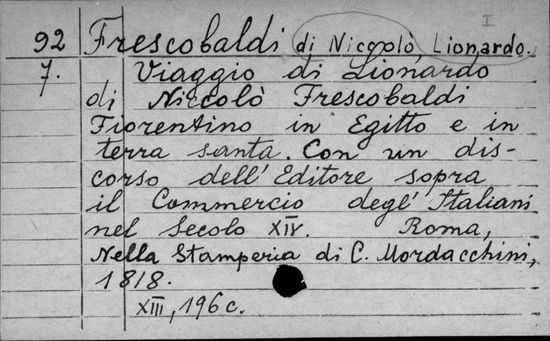 I
92 Frescobaldi di Niccolò, Lionardo.
7. Viaggio di Lionardo
di Niccolò Frescobaldi
Fiorentino in Egitto e in
terra santa. Con un dis-
corso dell' Editore sopra
il Commercio degl' Italiani
nel Secolo XIV. Roma,
Nella Stamperia di C. Mordacchini,
1818.
XIII, 196 c.